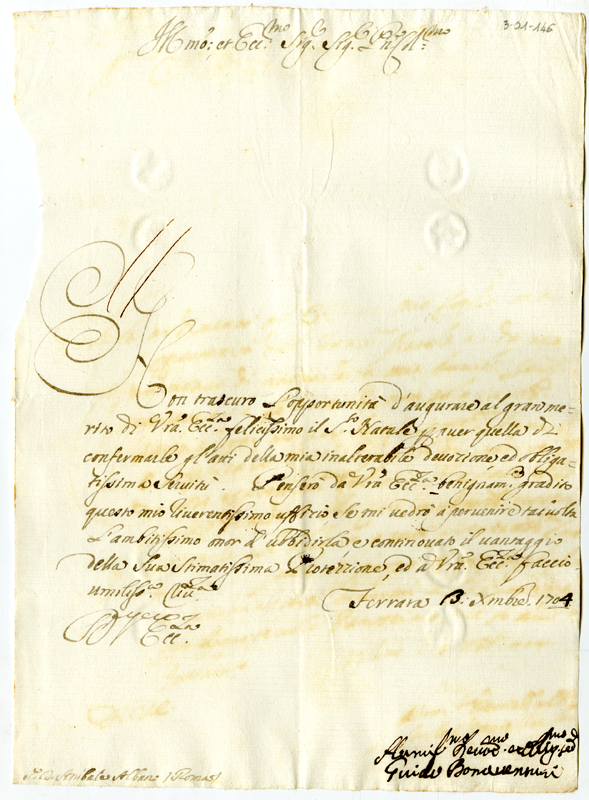 3-21-146
Illmo: et Ecc.mo Sig.r Sig.r Pron Col.mo
Non trascuro l'opportunità d'augurare al gran me=
rito di Vra. Ecc.za felicissimo il S.o Natale p aver quella di
confermarle gl'atti della mia inalterabile devozione, ed obliga=
tissima servitù. Penserò da Vra Ecc.za benignam.te gradito
questo mio riverentissimo uffizio, se mi vedrò à pervenire talvolta
l'ambitissimo onor d'ubbidirla, e continovato il vantaggio
della Sua Stimatissima Protezione, ed à Vra. Ecc.za faccio
umiliss.a
Ferrara 13: Xmbre. 1704
Di V.
Ecc.
Humil.mo Devot.mo et Oblig.mo
Guido Bonaventuri
Sig.r D. Anibale Albani (Roma)